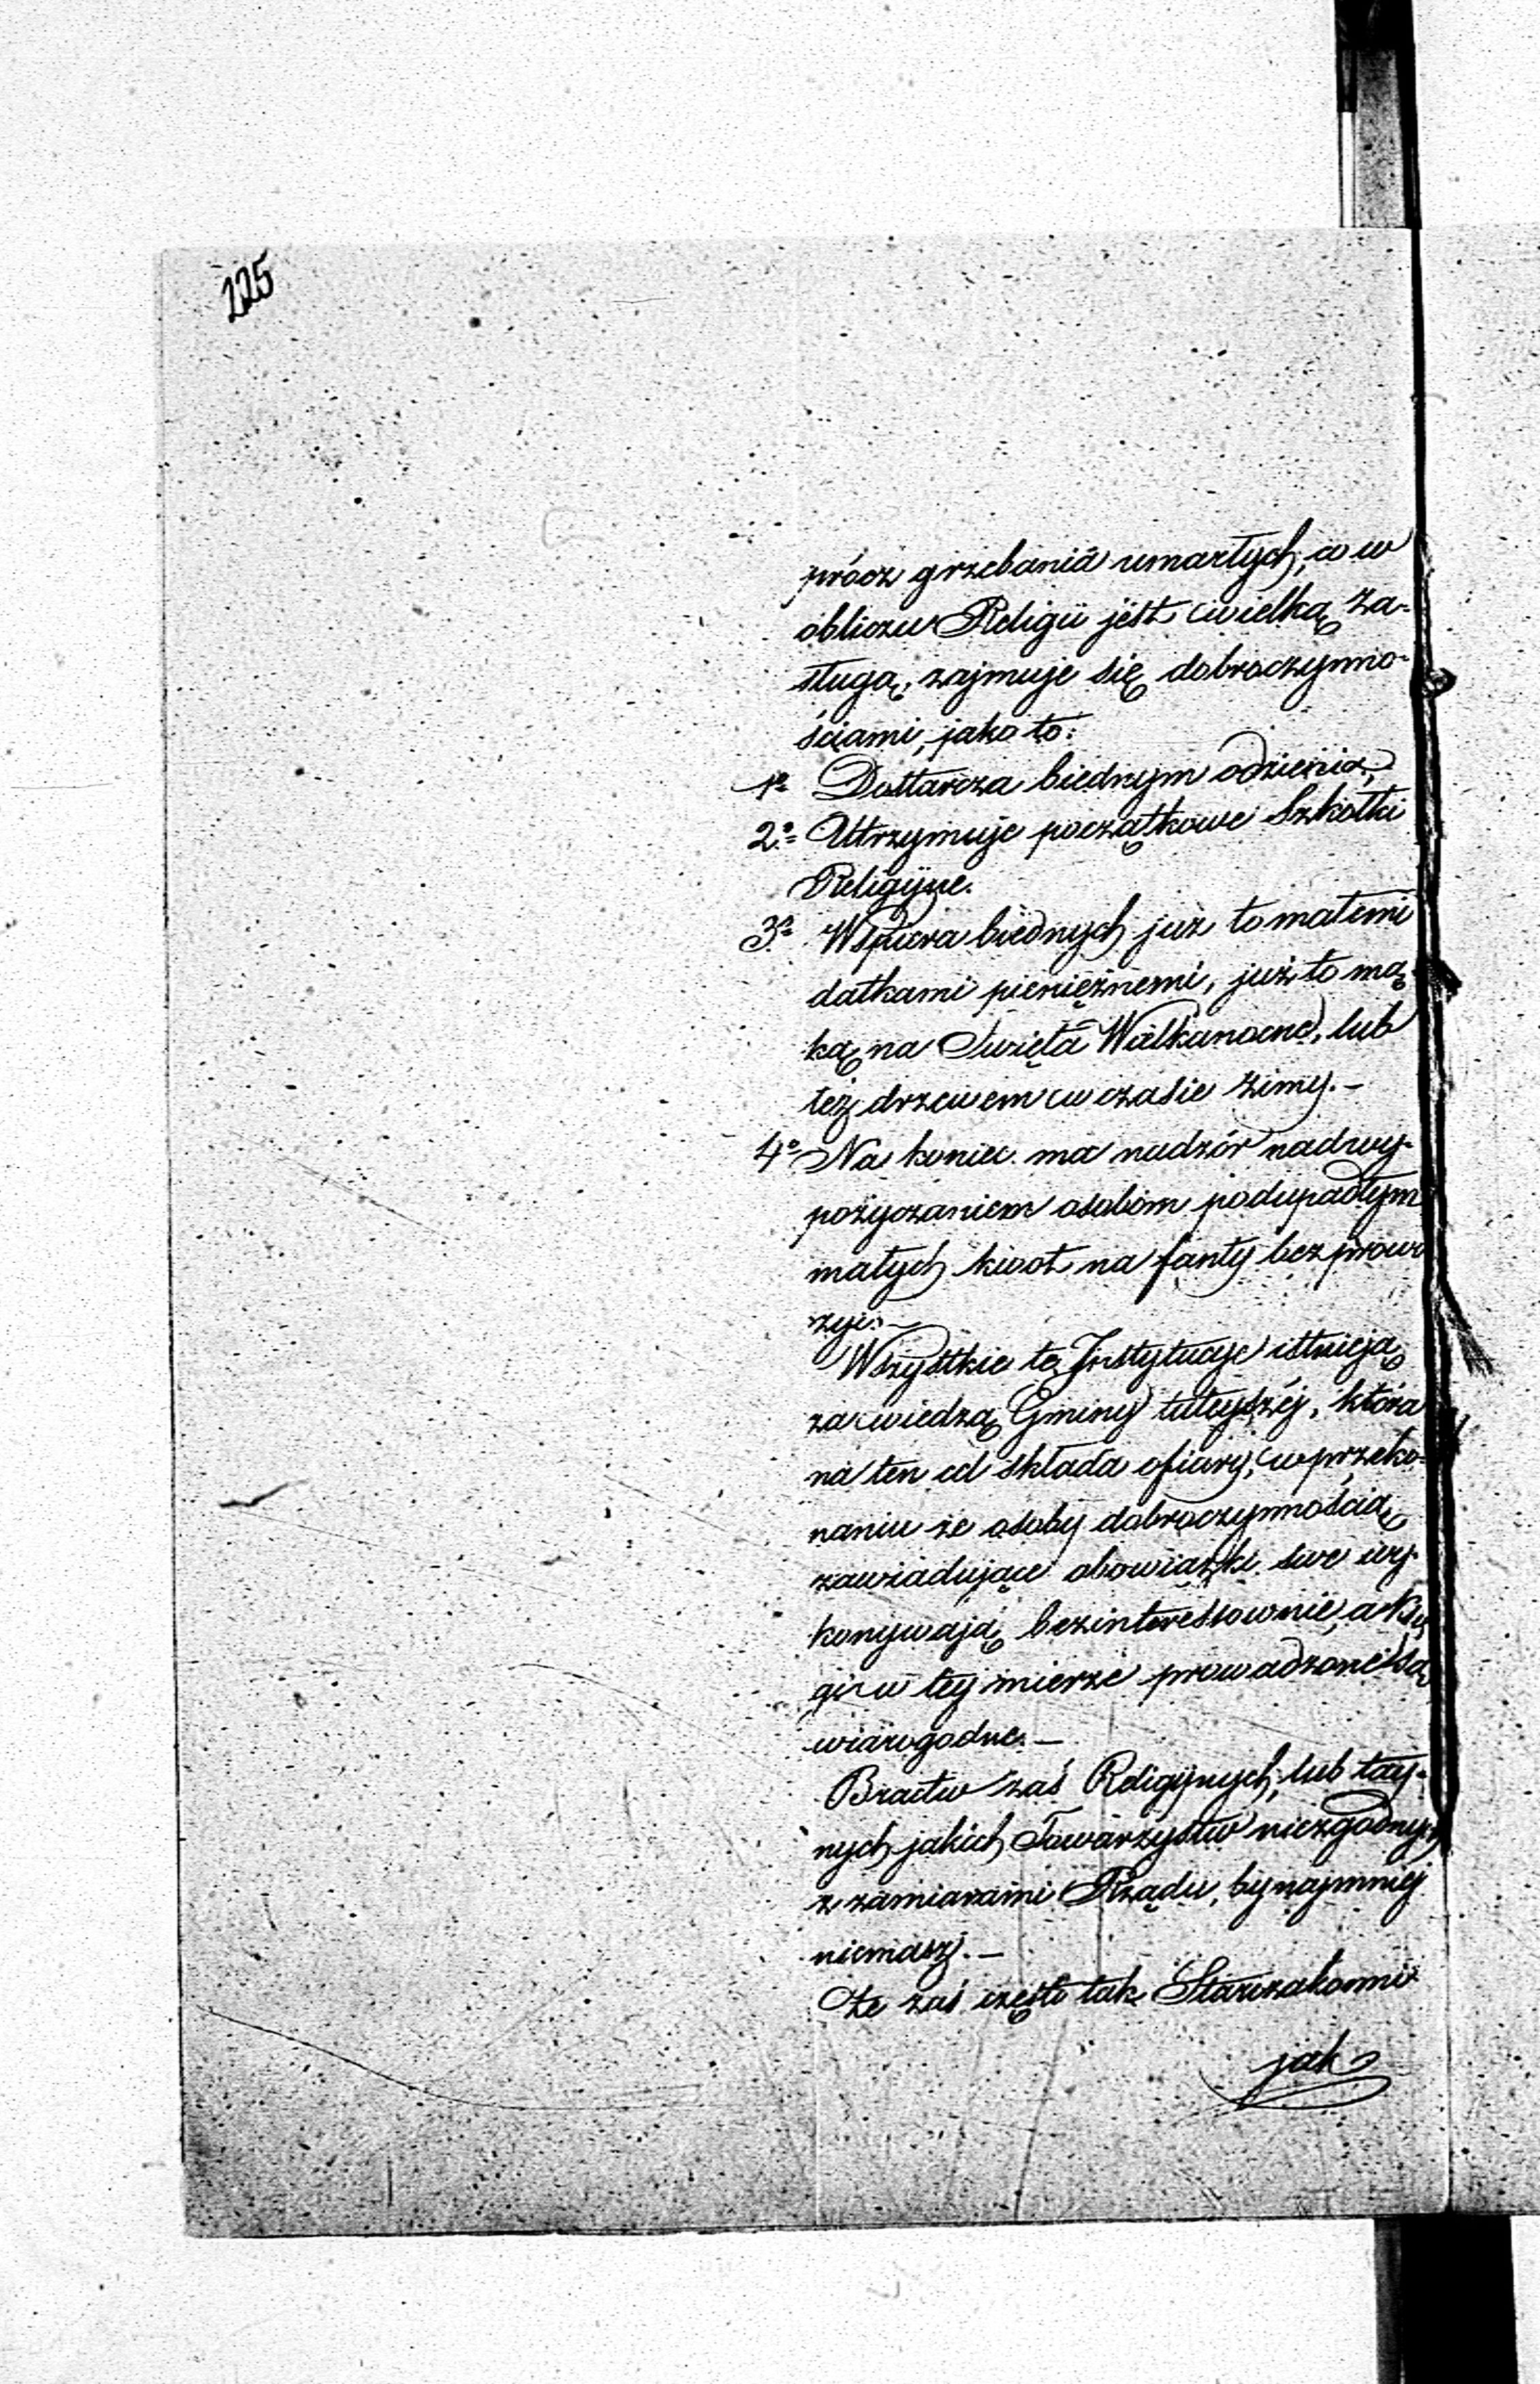 225
prócz grzebania umarłych, co w
obliczu Religii jest wielką za-
sługą, zajmuje się dobroczynno-
ściami, jako to:
1o Dostarcza biednym odzienia,
2o Utrzymuje początkowe Szkołki
Religijne.
3o Wspiera biednych już to małemi
datkami pieniężnemi, już to mą
ką na Święta Wielkanocne, lub
też drzewem w czasie zimy. —
4o Na koniec ma nadzór nad wy-
pożyczaniem osobom podupadłym
małych kwot na fanty bez prowi
zyi. —
Wszystkie te Instytucye istnieją
za wiedzą Gminy tuteyszéj, która
na ten cel składa ofiary, w przeko-
naniu że osoby dobroczynnością
zawiadujące obowiązki swe wy-
konywają bezinteressownie, a Księ
gi w tej mierze prowadzone są
wiarogodne. —
Bractw zaś Religijnych, lub tay-
nych jakich Towarzystw niezgodnych
z zamiarami Rządu, bynajmniej
niemasz. —
Że zaś często tak Starozakonni
jak